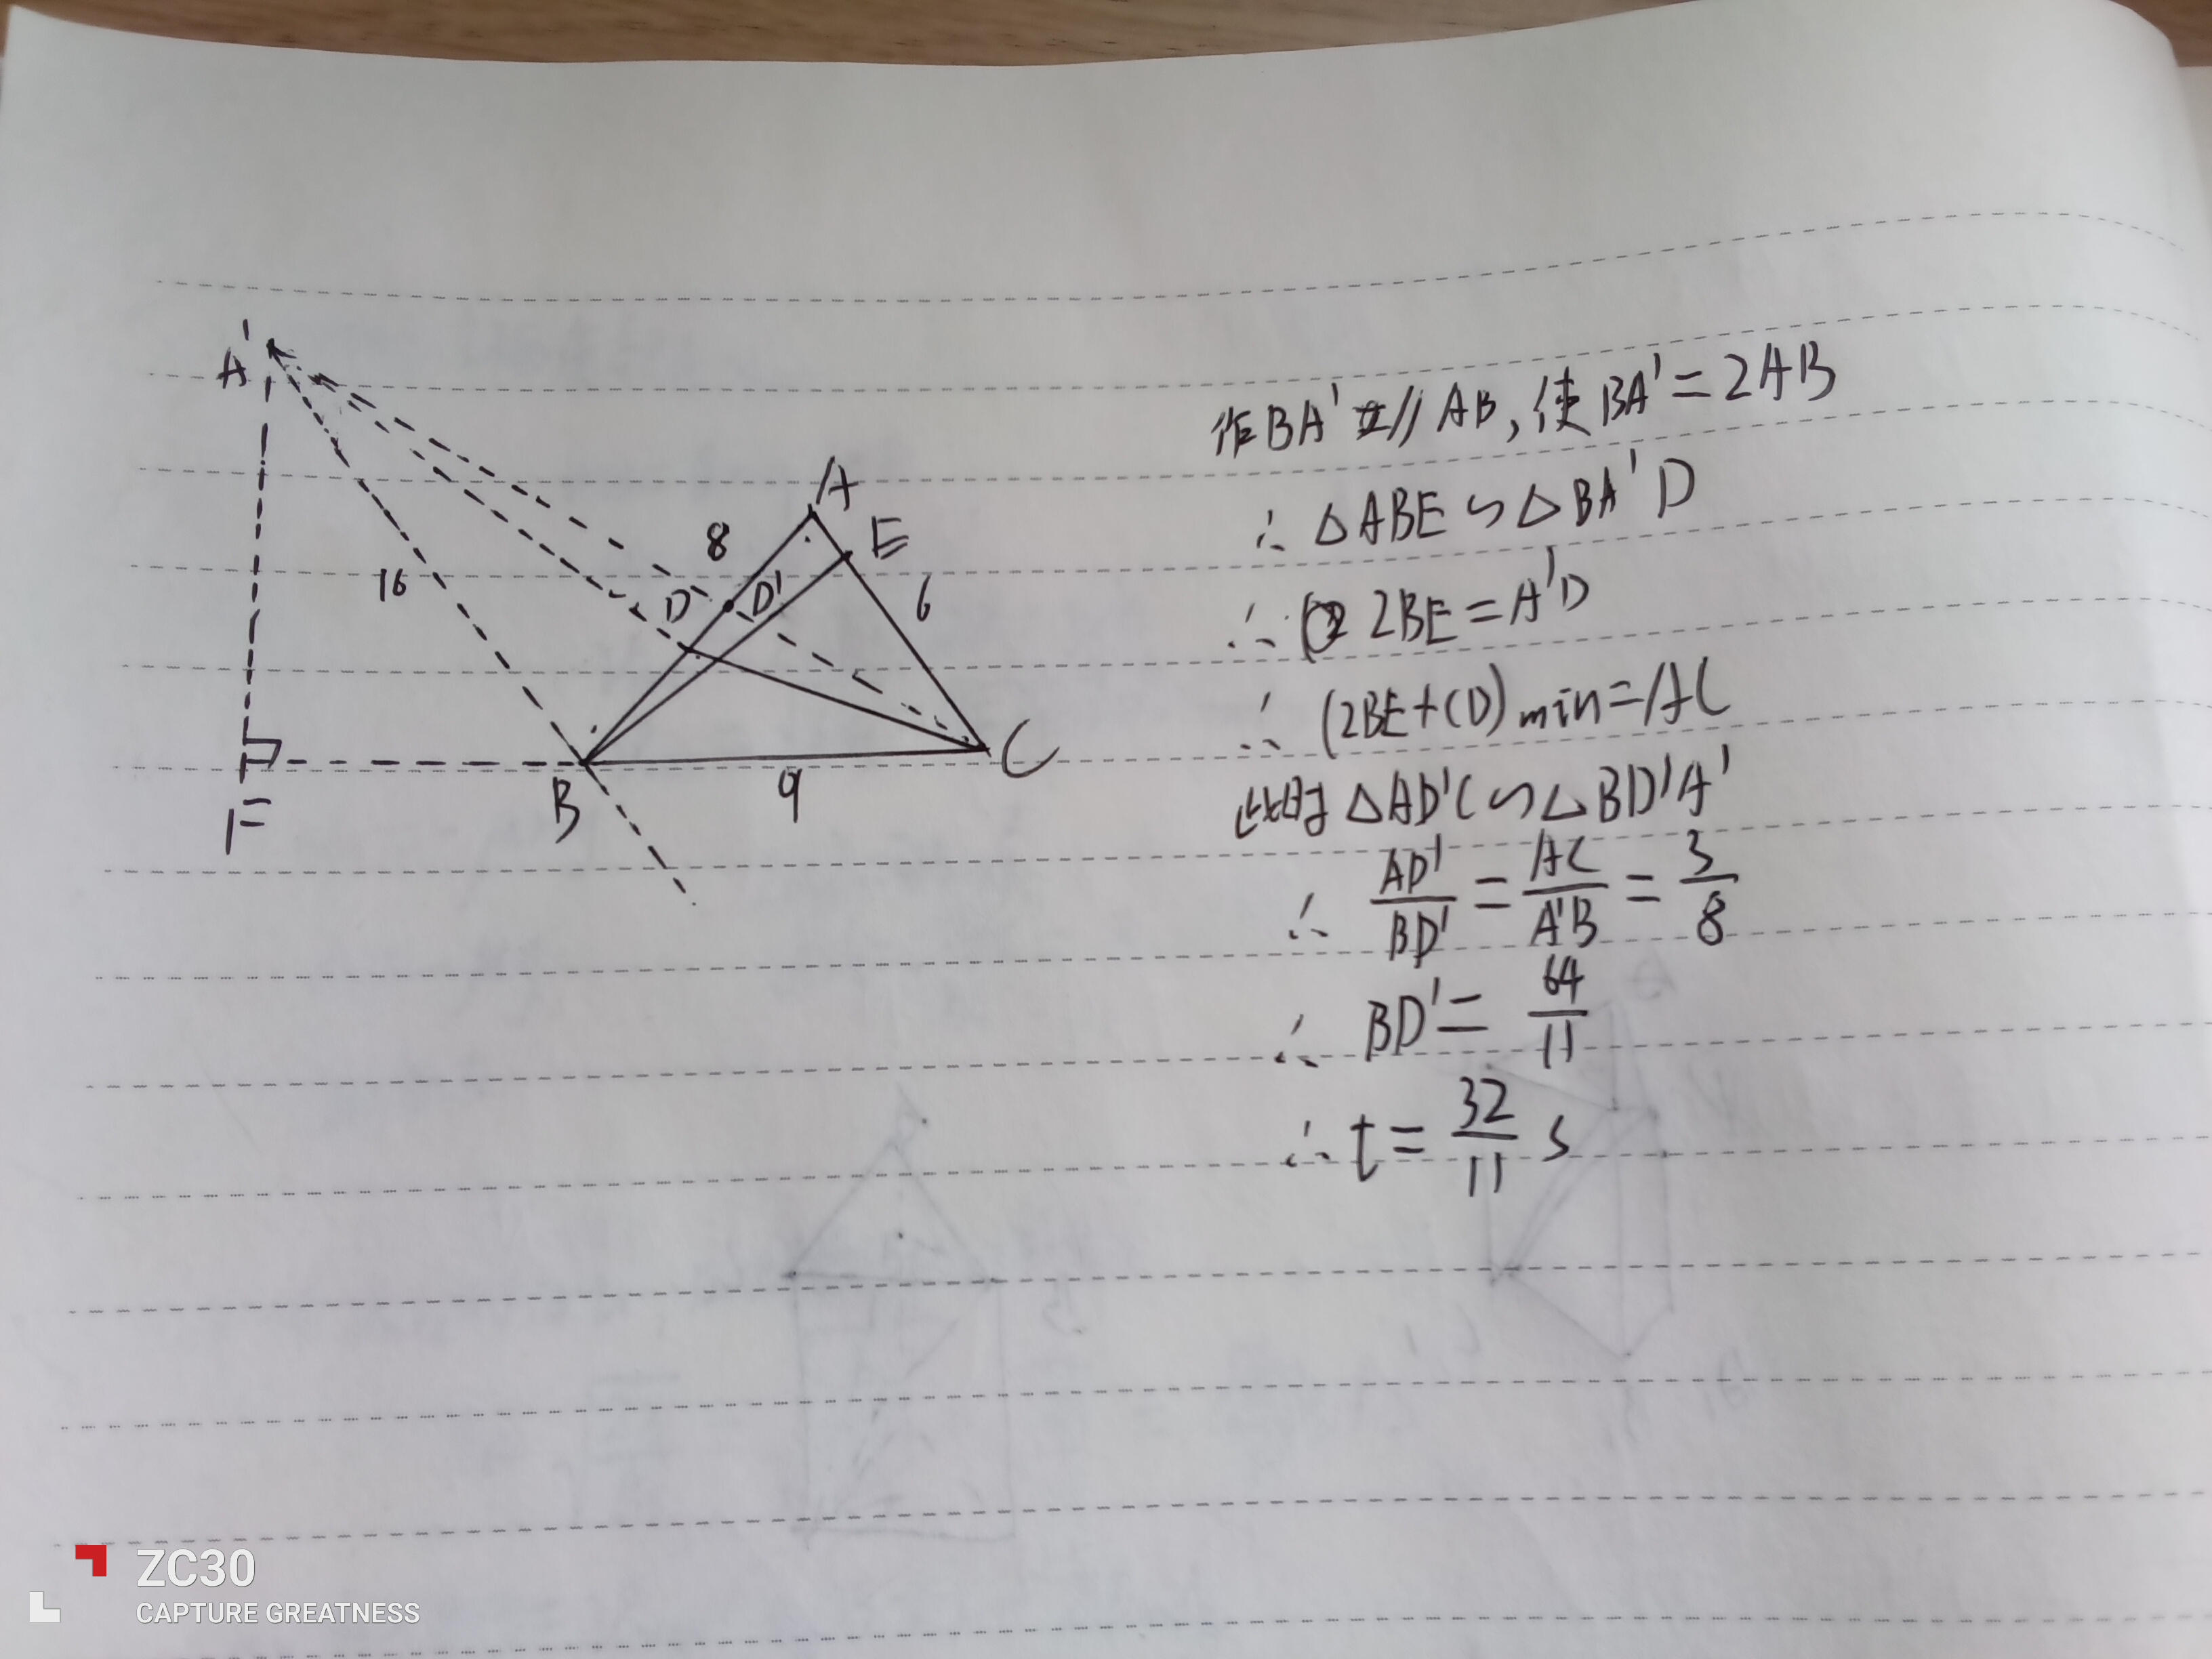 A'
A
8
E
D
D'
16
6
B
9
C
F
作BA'∥AB,使BA'=2AB
∴ △ABE∽△BA'D
∴ 2BE=A'D
∴ (2BE+CD)min=AC
此时△AD'C∽△BD'A'
∴ AD'/BD'=AC/A'B=3/8
∴ BD'=64/11
∴ t=32/11 s
ZC30
CAPTURE GREATNESS